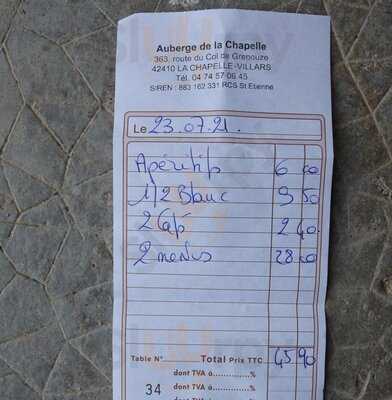 Auberge de la Chapelle
363, route du Col de Grenouze
42410 LA CHAPELLE-VILLARS
Tél. 04 74 57 06 45
SIREN : 883 162 331 RCS St Etienne
Le 23.07.21.
Apéritifs 6 00
1/2 Blanc 9 50
2 Cafs 2 40
2 menus 28 00
Table N° Total Prix TTC 45 90
dont TVA à..............%
34 dont TVA à..............%
dont TVA à..............%